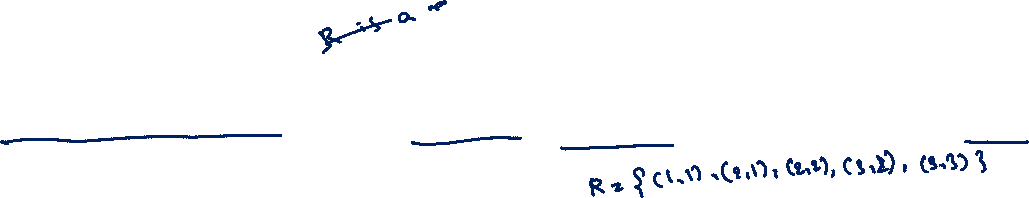 R is a
R = {(1,1), (2,1), (2,2), (3,2), (3,3)}